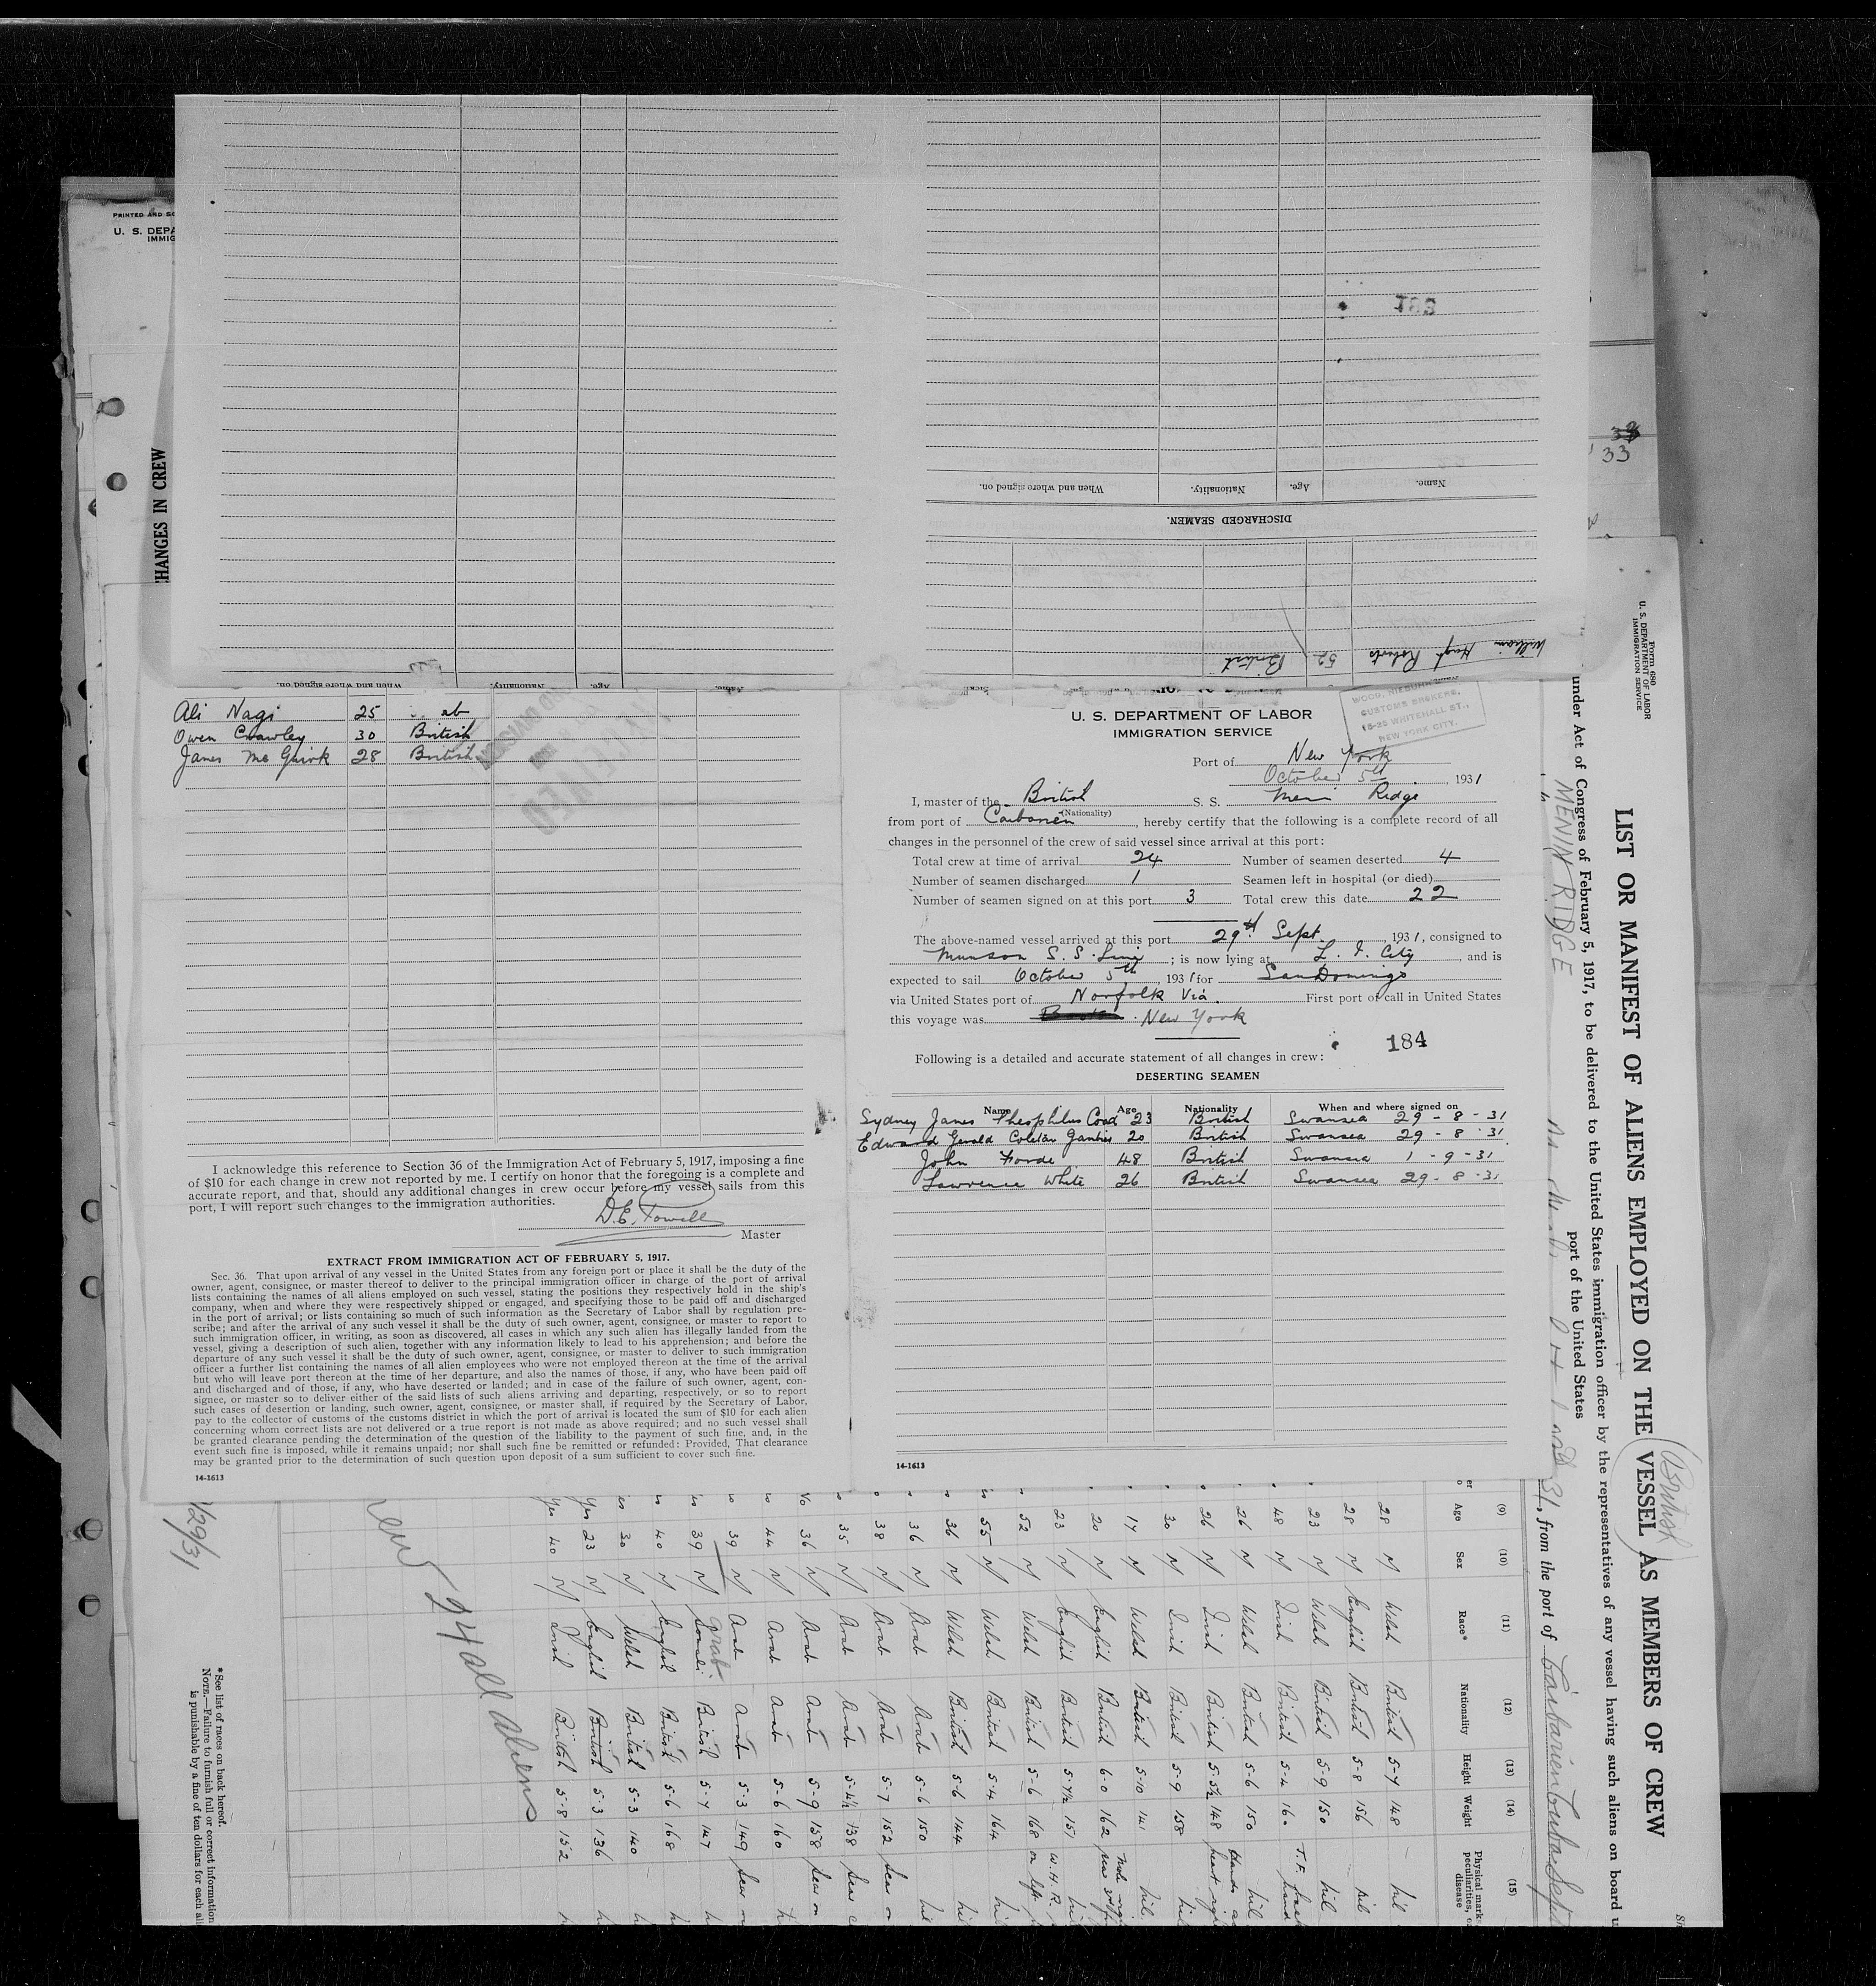 PRINTED AND
U. S. DEPA
IMMIG
CHANGES IN CREW
33
Name. Age. Nationality. When and where signed on.
DISCHARGED SEAMEN.
William Hugh Roberts 52 British
Name. Age. Nationality. When and where signed on.
Ali Nagi 25
Owen Crawley 30 British
James Mc Guirk 28 British
I acknowledge this reference to Section 36 of the Immigration Act of February 5, 1917, imposing a fine
of $10 for each change in crew not reported by me. I certify on honor that the foregoing is a complete and
accurate report, and that, should any additional changes in crew occur before my vessel sails from this
port, I will report such changes to the immigration authorities.
D.E. Towell
Master
EXTRACT FROM IMMIGRATION ACT OF FEBRUARY 5, 1917.
Sec. 36. That upon arrival of any vessel in the United States from any foreign port or place it shall be the duty of the
owner, agent, consignee, or master thereof to deliver to the principal immigration officer in charge of the port of arrival
lists containing the names of all aliens employed on such vessel, stating the positions they respectively hold in the ship's
company, when and where they were respectively shipped or engaged, and specifying those to be paid off and discharged
in the port of arrival; or lists containing so much of such information as the Secretary of Labor shall by regulation pre-
scribe; and after the arrival of any such vessel it shall be the duty of such owner, agent, consignee, or master to report to
such immigration officer, in writing, as soon as discovered, all cases in which any such alien has illegally landed from the
vessel, giving a description of such alien, together with any information likely to lead to his apprehension; and before the
departure of any such vessel it shall be the duty of such owner, agent, consignee, or master to deliver to such immigration
officer a further list containing the names of all alien employees who were not employed thereon at the time of the arrival
but who will leave port thereon at the time of her departure, and also the names of those, if any, who have been paid off
and discharged and of those, if any, who have deserted or landed; and in case of the failure of such owner, agent, con-
signee, or master so to deliver either of the said lists of such aliens arriving and departing, respectively, or so to report
such cases of desertion or landing, such owner, agent, consignee, or master shall, if required by the Secretary of Labor,
pay to the collector of customs of the customs district in which the port of arrival is located the sum of $10 for each alien
concerning whom correct lists are not delivered or a true report is not made as above required; and no such vessel shall
be granted clearance pending the determination of the question of the liability to the payment of such fine, and, in the
event such fine is imposed, while it remains unpaid; nor shall such fine be remitted or refunded: Provided, That clearance
may be granted prior to the determination of such question upon deposit of a sum sufficient to cover such fine.
14-1613
CUSTOMS BROKERS,
15-25 WHITEHALL ST.,
NEW YORK CITY.
U. S. DEPARTMENT OF LABOR
IMMIGRATION SERVICE
Port of New York
October 5th, 1931
I, master of the British S. S. Menin Ridge
(Nationality)
from port of Caibarien, hereby certify that the following is a complete record of all
changes in the personnel of the crew of said vessel since arrival at this port:
Total crew at time of arrival 24 Number of seamen deserted 4
Number of seamen discharged 1 Seamen left in hospital (or died)
Number of seamen signed on at this port 3 Total crew this date 22
The above-named vessel arrived at this port 29th Sept, 1931, consigned to
Munson S. S. Line; is now lying at L. I. City, and is
expected to sail October 5th, 1931 for San Domingo
via United States port of Norfolk Via. First port of call in United States
this voyage was New York
184
Following is a detailed and accurate statement of all changes in crew:
DESERTING SEAMEN
Name Age Nationality When and where signed on
Sydney James Theophilus Coad 23 British Swansea 29-8-31
Edward Gerald Colston 20 British Swansea 29-8-31
John Forde 48 British Swansea 1-9-31
Lawrence White 26 British Swansea 29-8-31
14-1613
Form 680
U. S. DEPARTMENT OF LABOR
IMMIGRATION SERVICE
(British)
LIST OR MANIFEST OF ALIENS EMPLOYED ON THE VESSEL AS MEMBERS OF CREW
under Act of Congress of February 5, 1917, to be delivered to the United States immigration officer by the representatives of any vessel having such aliens on board
port of the United States
MENIN RIDGE
31, from the port of Caibarien Cuba Sept
(9) (10) (11) (12) (13) (14) (15)
Age Sex Race* Nationality Height Weight Physical marks, peculiarities, or disease
28 M Welsh British 5-7 148 nil
28 M English British 5-8 156 nil
23 M Welsh British 5-9 150 nil
48 M Irish British 5-4 160
26 M Welsh British 5-6 150 nil
26 M Irish British 5-5½ 148
30 M Irish British 5-9 158 nil
17 M Welsh British 5-10 141 nil
20 M English British 6-0 162
23 M English British 5-7½ 151 nil
52 M Welsh British 5-6 168
55 M Welsh British 5-4 164
36 M Welsh British 5-6 144
36 M Arab Arab 5-6 150
38 M Arab Arab 5-7 152 Scar
35 M Arab Arab 5-4½ 138 Scar
36 M Arab Arab 5-9 158 Scar on
44 M Arab Arab 5-6 160
39 M Arab Arab 5-3 149 Scar
39 M Somali Arab British 5-7 147
40 M English British 5-6 168
30 M Welsh British 5-3 140
Yes 23 M English British 5-3 136
Yes 40 M Irish British 5-8 152
24 all aliens
/29/31
*See list of races on back hereof.
NOTE.—Failure to furnish full or correct information
is punishable by a fine of ten dollars for each